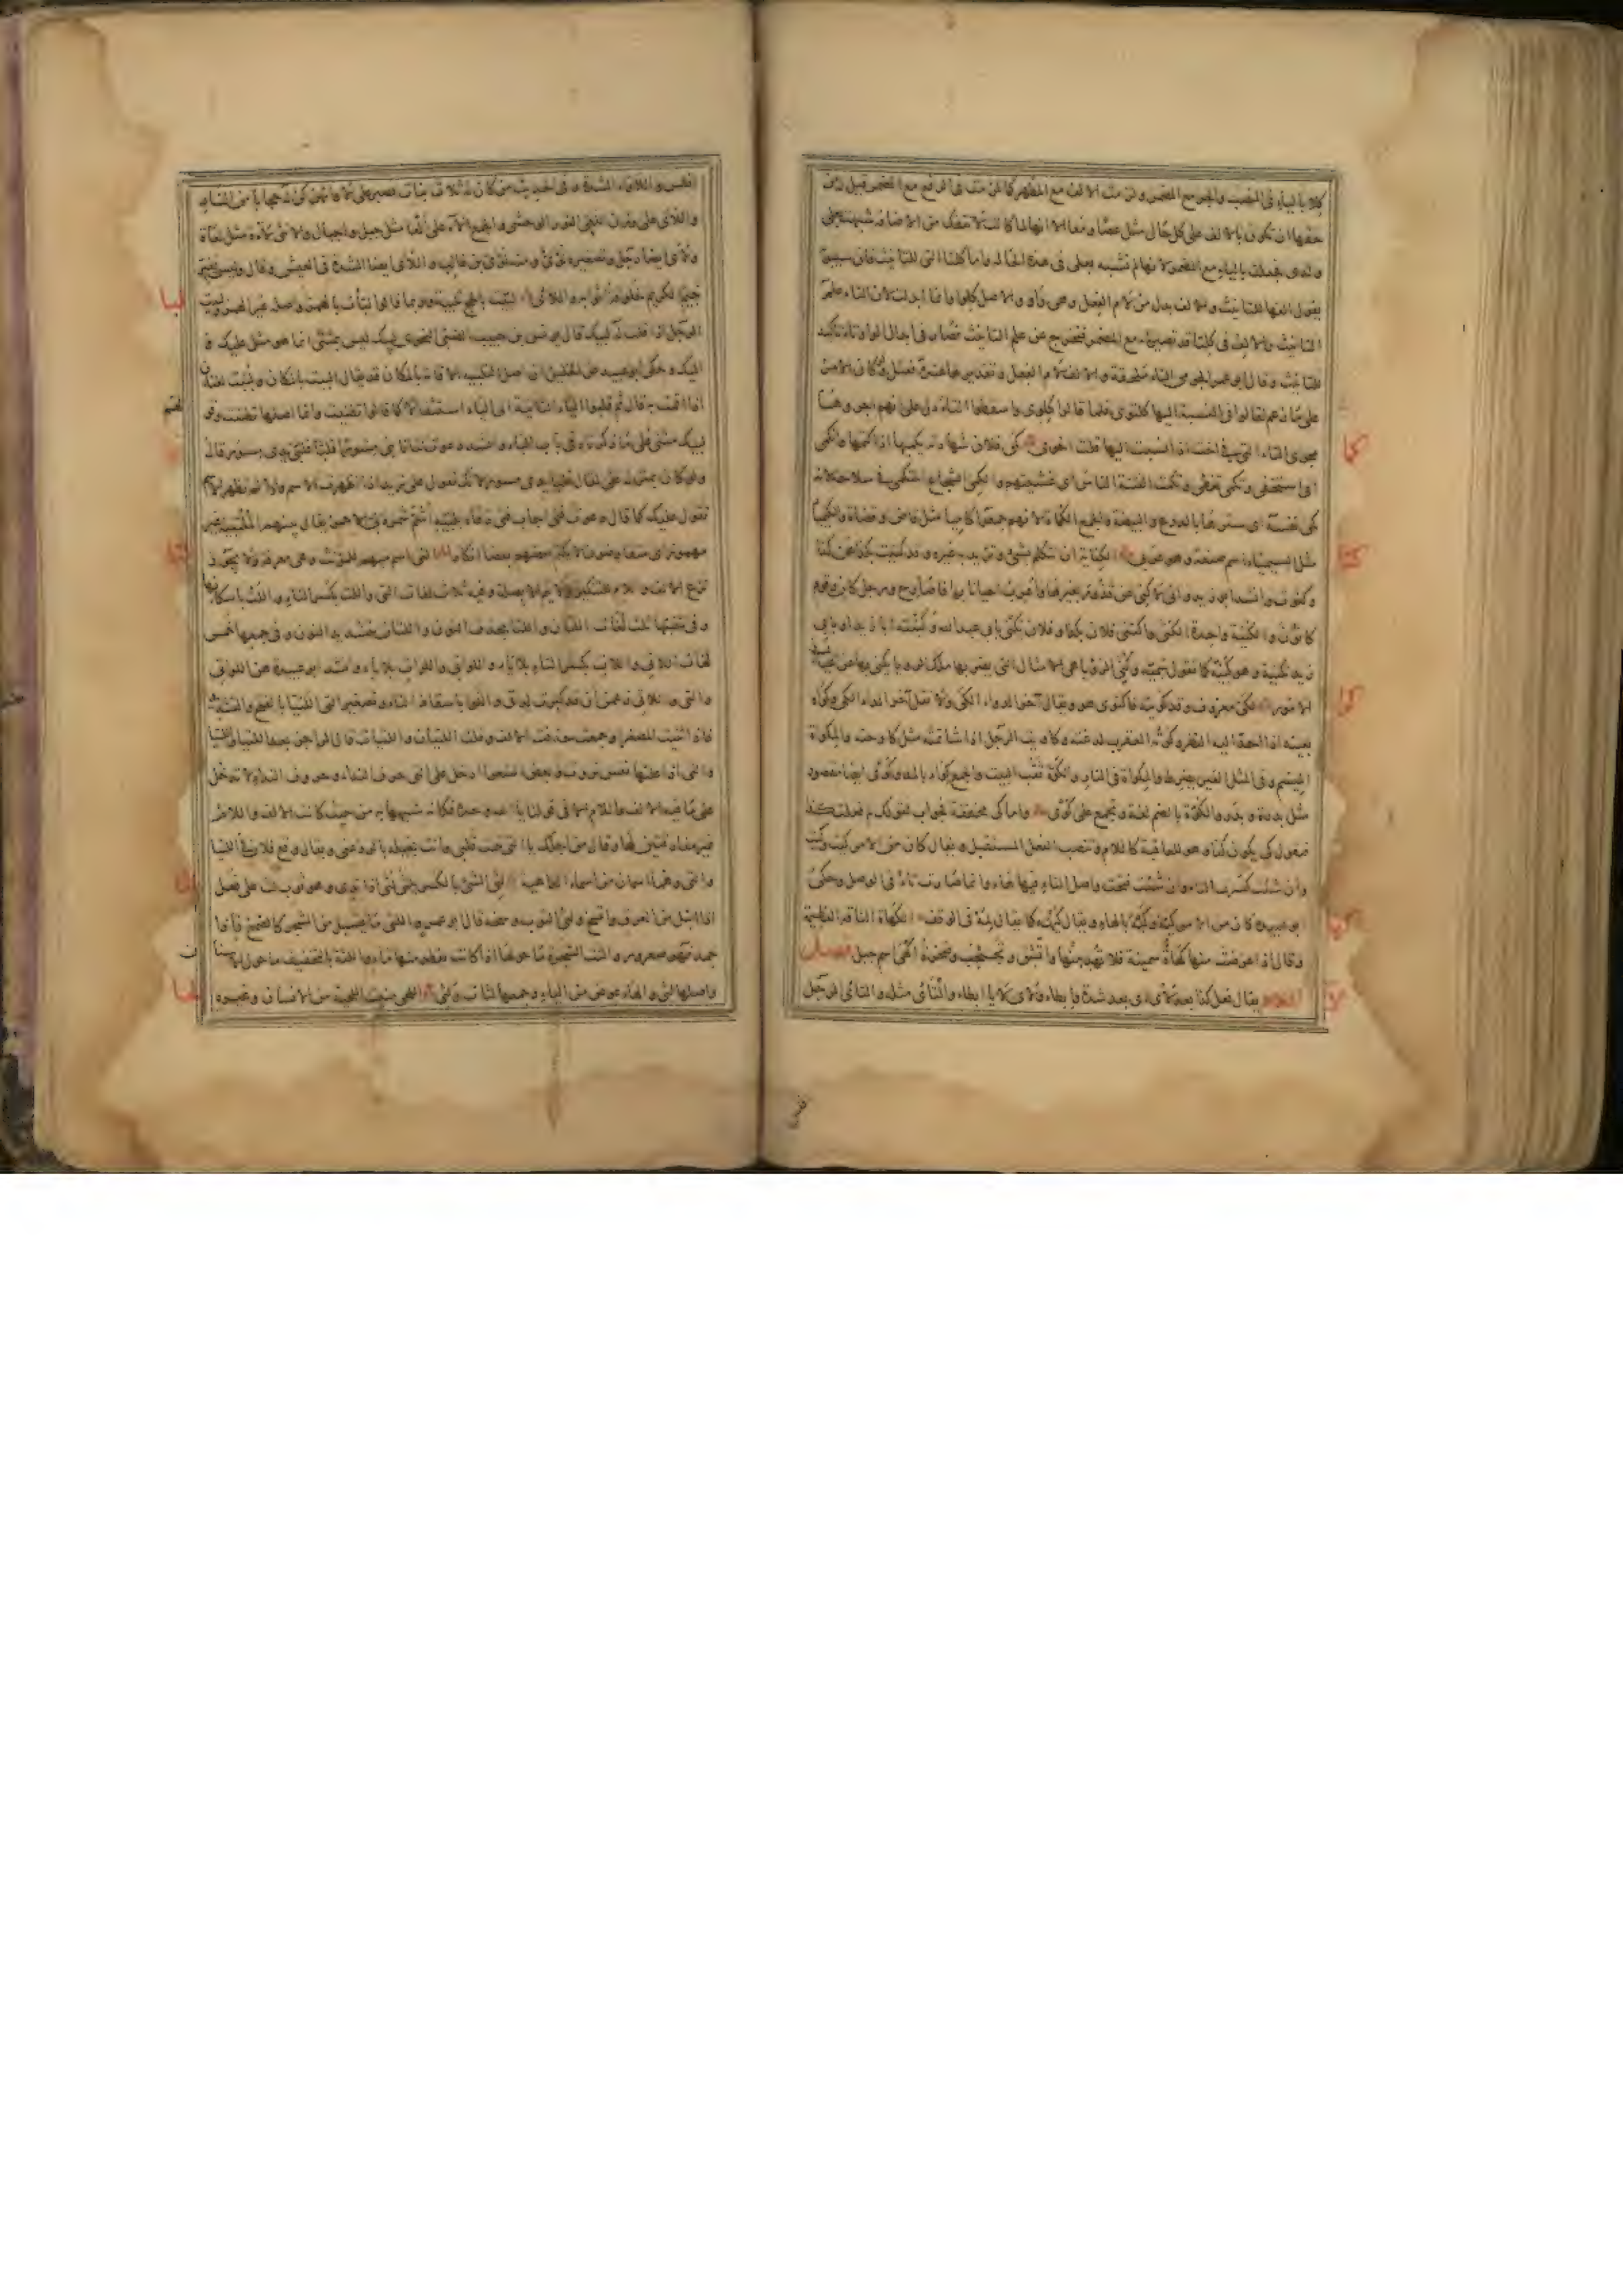 كلا بالياء في النصب والجر مع المضمر ولزمت الالف مع المظهر كما لزمت في الرفع مع المضمر قيل لان
حقها ان تكون بالالف على كل حال مثل عصا ومعا الا انها لما كانت لا تنفك من الاضافة شبهت بعلى
ولدى فجعلت بالياء مع المضمر لانها لم تشبه بعلى في هذه الحالة واما كلتا التي للتانيث فان سيبويه
يقول الفها للتانيث والالف بدل من لام الفعل وهي واو والاصل كلوا وانما ابدلت لان التاء علم
التانيث والالف في كلتا قد تصير ياء مع المضمر فتخرج عن علم التانيث فصار في ابدال الواو تاء تاكيد
للتانيث وقال ابو عمر الجرمي التاء ملحقة والالف لام الفعل وتقديرها عنده فعتل ولو كان الامر
على ما زعم لقالوا في النسبة اليها كلتوي فلما قالوا كلوي واسقطوا التاء دل على انهم اجروها
مجرى التاء التي في اخت اذا نسبت اليها قلت اخوي كمى فلان شهادته يكميها اذا كتمها وانكمى
اي استخفى وتكمى تغطى وتكمت الفتنة الناس اي غشيتهم والكمي الشجاع المتكمي في سلاحه لانه
كمى نفسه اي سترها بالدرع والبيضة والجمع الكماة كانهم جمعوا كاميا مثل قاض وقضاة والكيميا
مثل السيمياء اسم صنعة وهو عربي الكناية ان تتكلم بشيء وتريد به غيره وقد كنيت بكذا عن كذا
وكنوت وانشد ابو زيد واني لاكني عن قذور بغيرها واعرب احيانا بها فاصارح ورجل كان وقوم
كانون والكنية واحدة الكنى واكتنى فلان بكذا وفلان يكنى بابي عبد الله وكنيته ابا زيد او بابي
زيد تكنية وهو كنيه كما تقول سميه وكنى الرؤيا هي الامثال التي يضربها ملك الرؤيا يكنى بها عن اعيان
الامور الكي معروف وقد كويته فاكتوى هو ويقال آخر الدواء الكي ولا تقل آخر الداء الكي وكواه
بعينه اذا احد اليه النظر وكوته العقرب لدغته وكاويت الرجل اذا شاتمته مثل كاوحته والمكواة
الميسم وفي المثل العير يضرط والمكواة في النار والكوة ثقب البيت والجمع كواء بالمد وكوى ايضا مقصور
مثل بدرة وبدر والكوة بالضم لغة وتجمع على كوى واما كي مخففة فجواب لقولك لم فعلت كذا
فتقول كي يكون كذا وهو للعاقبة كاللام وتنصب الفعل المستقبل ويقال كان من الامر كيت وكيت
وان شئت كسرت التاء وان شئت فتحت واصل التاء فيها هاء وانما صارت تاء في الوصل وحكى
ابو عبيدة كان من الامر كيه وكيه بالهاء ويقال كيمه كما يقال لمه في الوقف الكهاة الناقة العظيمة
وقال اذا عرضت منها كهاة سمينة فلا تهد منها واتشق وتجبجب وصخرة اكهى اسم جبل فصل
اللام يقال فعل كذا بعد لأي اي بعد شدة وابطاء ولأى لأيا ابطاء والتأى مثله والتأى الرجل
افلس واللاواء الشدة وفي الحديث من كان له ثلاث بنات فصبر على لاوائهن كن له حجابا من النار
واللأى على وزن اللعى الثور الوحشي والجمع الآء على ألعاع مثل جبل واجبال والانثى لآة مثل لعاة
ولأي ايضا رجل وتصغيره لؤي ومنه لؤي بن غالب واللأي ايضا الشدة في العيش وقال وليس يغير
خيم الكريم خلوقة اثوابه واللأي لبيت بالحج تلبية وربما قالوا لبأت بالهمز واصله غير الهمز ولبيت
الرجل اذا قلت له لبيك قال يونس بن حبيب الضبي النحوي لبيك ليس بمثنى انما هو مثل عليك و
اليك وحكى ابو عبيد عن الخليل ان اصل التلبية الاقامة بالمكان قد يقال البت بالمكان ولببت لغتان
اذا اقمت به قال ثم قلبوا الباء الثانية الى الياء استثقالا كما قالوا تظنيت وانما اصلها تظننت وقو
لبيك مثنى على ما ذكرناه في باب الباء وانشد دعوت لما نابني مسورا فلبى فلبي يدي مسور قال
ولو كان بمنزلة على لقال فلبى يدي مسور لانك تقول على زيد اذا اظهرت الاسم واذا لم تظهر
تقول عليك كما قال دعوت فتى اجاب فتى دعاه بلبيه اشم شمردلي الاحمر يقال بينهم الملتبية غير
مهموز اي متفاوضون لا يكتم بعضهم بعضا انكارا التي اسم مبهم للمؤنث وهي معرفة ولا يجوز
نزع الالف واللام للتنكير ولا يتم الا بصلة وفيه ثلاث لغات التي واللت بكسر التاء واللت باسكانها
وفي تثنيتها ثلث لغات اللتان واللتا بحذف النون واللتان بتشديد النون وفي جمعها خمس
لغات اللاتي واللات بكسر التاء بلا ياء واللواتي واللوات بلا ياء وانشد ابو عبيدة من اللواتي
والتي واللاتي زعمن ان قد كبرت لداتي واللوا باسقاط التاء وتصغير التي اللتيا بالفتح والتشديد
فاذا اثنيت المصغر او جمعت حذفت الالف وقلت اللتيان واللتيات قال الراجز بعد اللتيا واللتيا
والتي اذا علتها نفس تردت وبعض الشعرا ادخل على التي حرف النداء وحروف النداء لا تدخل
على ما فيه الالف واللام الا في قولنا يا الله وحده فكانه شبهها به من حيث كانت الالف واللام
غير مفارقتين لها وقال من اجلك يا التي تيمت قلبي وانت بخيلة بالود عني ويقال وقع فلان في اللتيا
والتي وهما اسمان من اسماء الداهية لثي الشيء بالكسر يلثى لثى اذا ندي وهو ثوب لث على فعل
اذا ابتل من العرق واتسخ ولثى الثوب وسخه قال ابو عمرو اللثى ما يسيل من الشجر كالصمغ فاذا
جمد فهو صعرور والثت الشجرة ما حولها اذا كانت يقطر منها ماء واللثة بالتخفيف ما حول الاسنان
واصلها لثي والهاء عوض من الياء وجمعها لثات ولثى اللحى منبت اللحية من الانسان وغيره